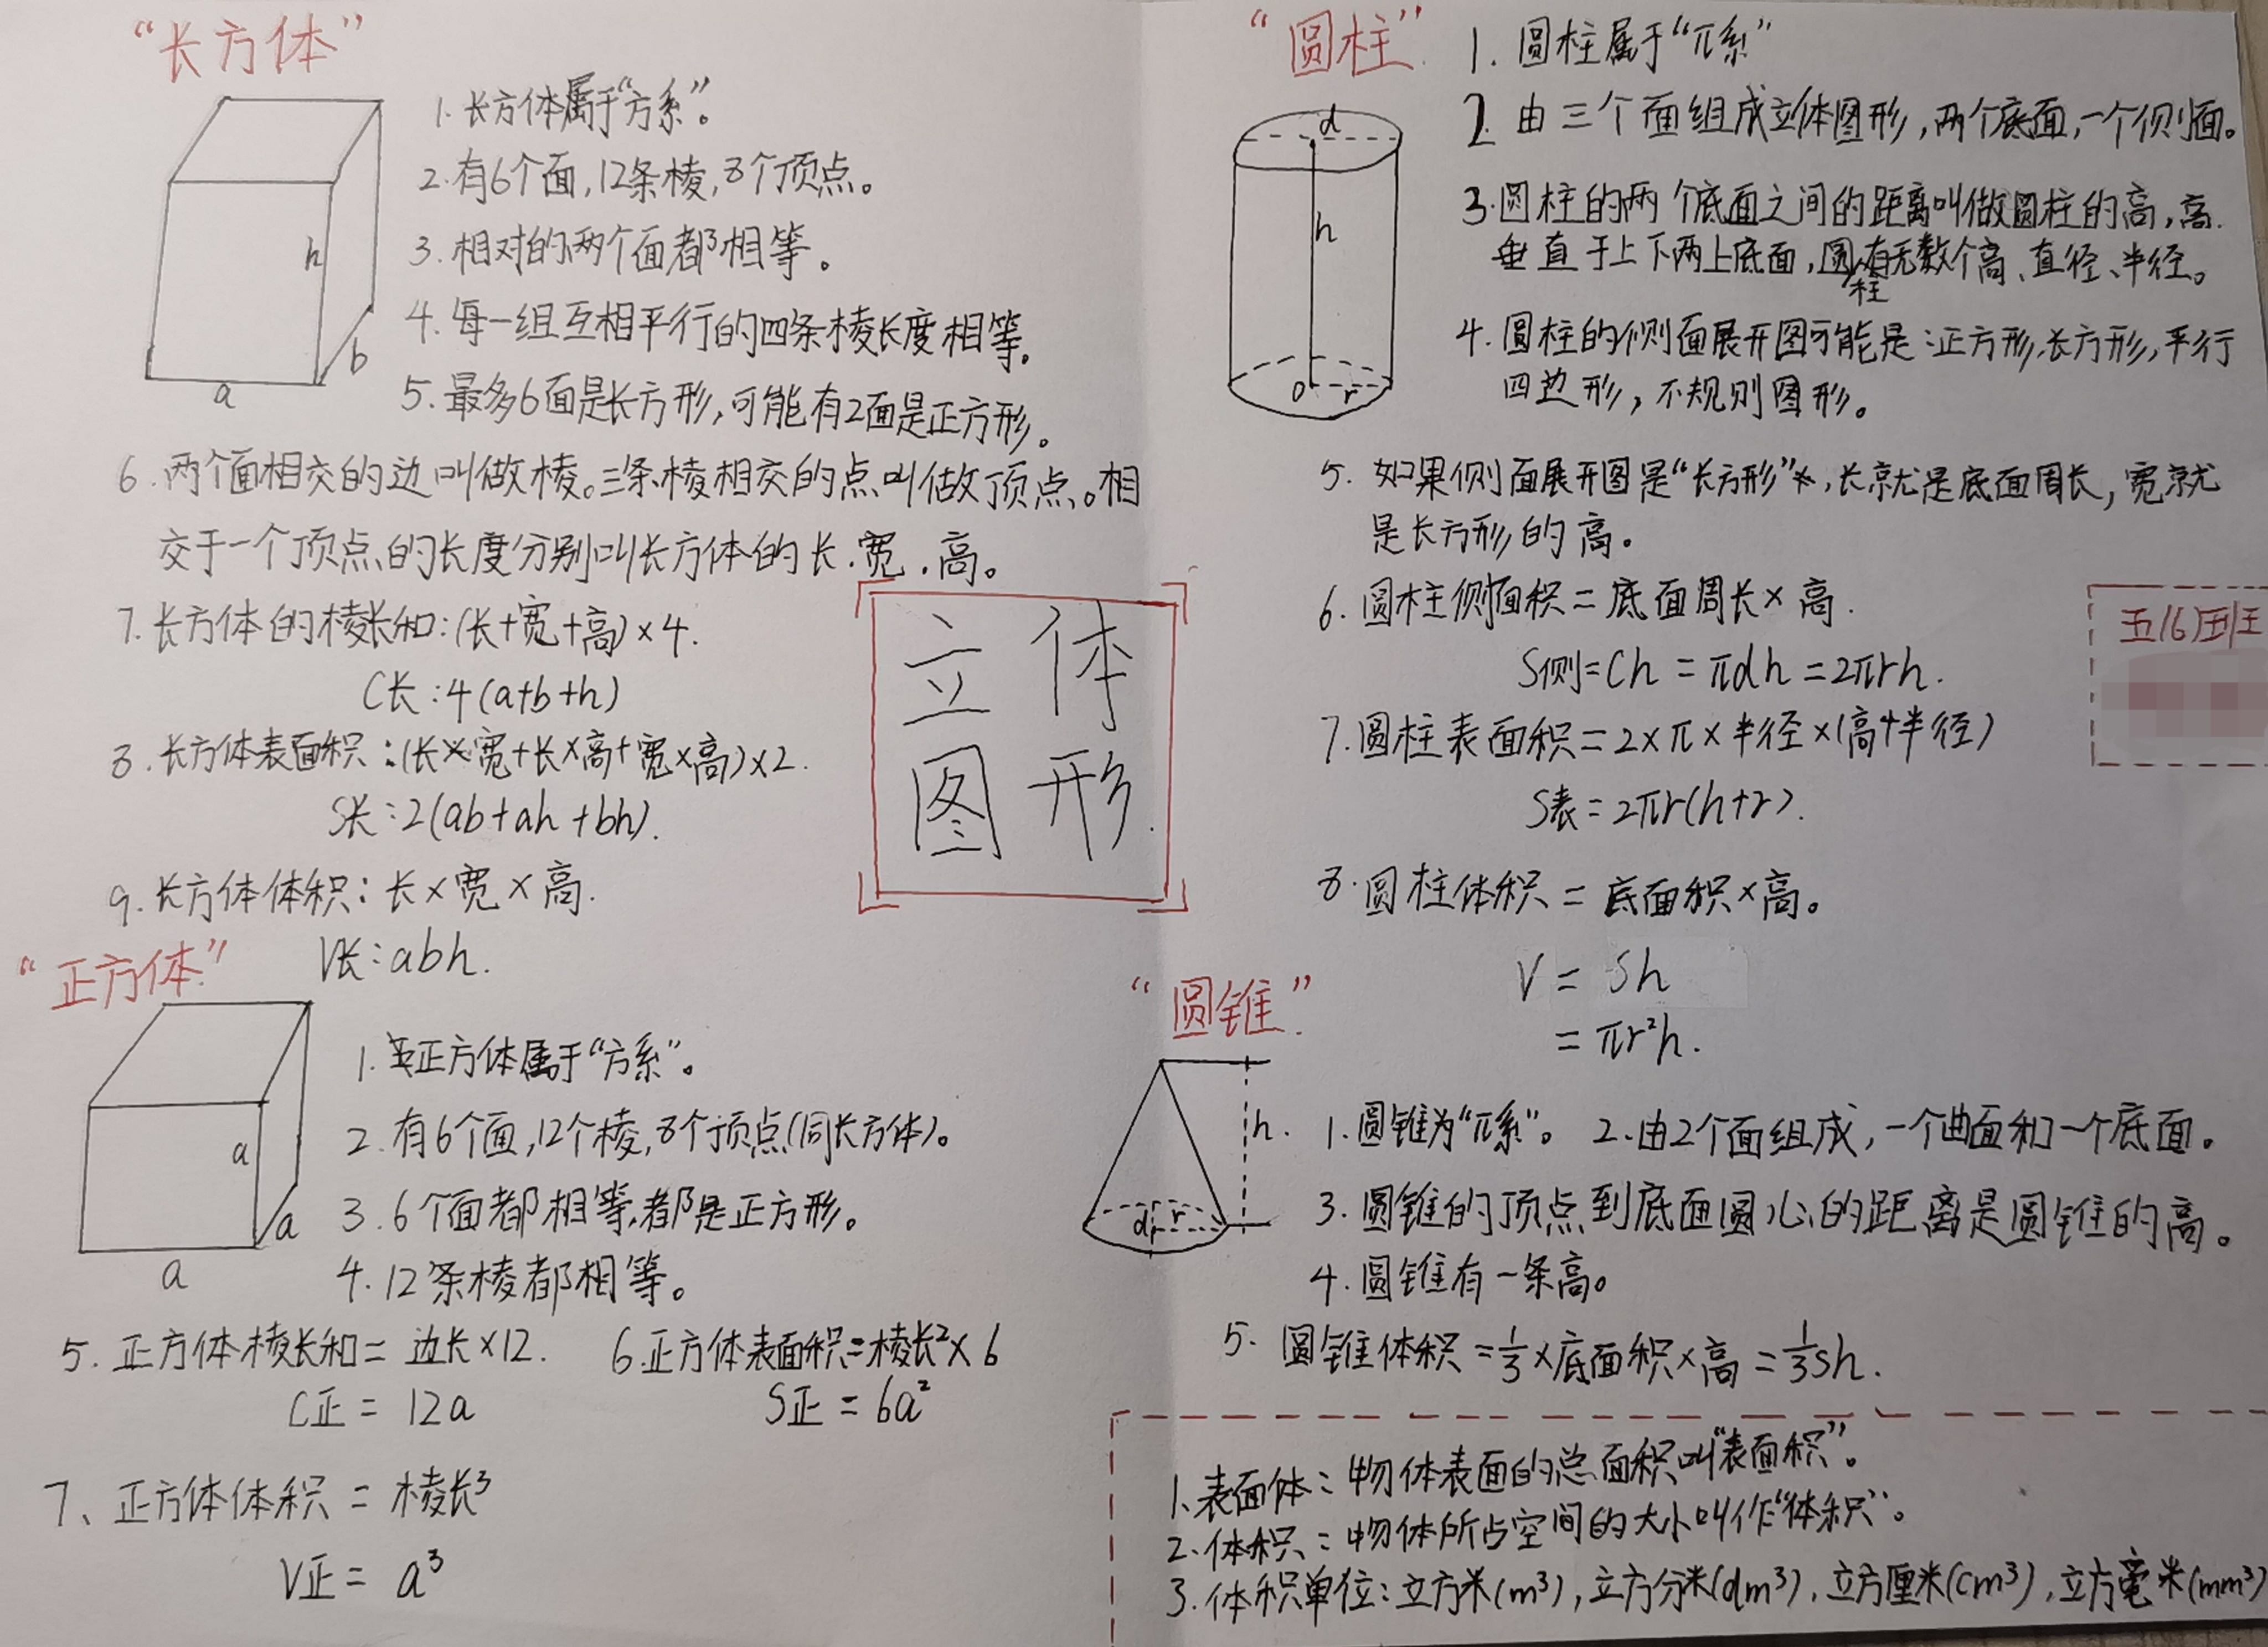 “长方体”
h
b
a
1.长方体属于“方系”。
2.有6个面,12条棱,8个顶点。
3.相对的两个面都相等。
4.每一组互相平行的四条棱长度相等。
5.最多6面是长方形,可能有2面是正方形。
6.两个面相交的边叫做棱。三条棱相交的点叫做顶点。相
交于一个顶点的长度分别叫长方体的长.宽.高。
7.长方体的棱长和:(长+宽+高)×4.
C长:4(a+b+h)
8.长方体表面积:(长×宽+长×高+宽×高)×2.
S长:2(ab+ah+bh).
9.长方体体积:长×宽×高.
V长:abh.
立体
图形.
“正方体”
a
a
a
1.正方体属于“方系”。
2.有6个面,12个棱,8个顶点(同长方体)。
3.6个面都相等,都是正方形。
4.12条棱都相等。
5.正方体棱长和=边长×12.
C正=12a
6.正方体表面积=棱长²×6
S正=6a²
7、正方体体积=棱长³
V正=a³
“圆柱”
d
h
o
r
1.圆柱属于“π系”
2.由三个面组成立体图形,两个底面,一个侧面。
3.圆柱的两个底面之间的距离叫做圆柱的高,高.
垂直于上下两上底面,圆柱有无数个高、直径、半径。
4.圆柱的侧面展开图可能是:正方形,长方形,平行
四边形,不规则图形。
5.如果侧面展开图是“长方形”,长就是底面周长,宽就
是长方形的高。
6.圆柱侧面积=底面周长×高.
S侧=Ch=πdh=2πrh.
7.圆柱表面积=2×π×半径×(高+半径)
S表=2πr(h+r).
8.圆柱体积=底面积×高。
V=Sh
=πr²h.
五16班
“圆锥”
h.
d
r
1.圆锥为“π系”。 2.由2个面组成,一个曲面和一个底面。
3.圆锥的顶点到底面圆心的距离是圆锥的高。
4.圆锥有一条高。
5.圆锥体积=1/3×底面积×高=1/3Sh.
1、表面体:物体表面的总面积叫“表面积”。
2.体积:物体所占空间的大小叫作“体积”。
3.体积单位:立方米(m³),立方分米(dm³),立方厘米(cm³),立方毫米(mm³)